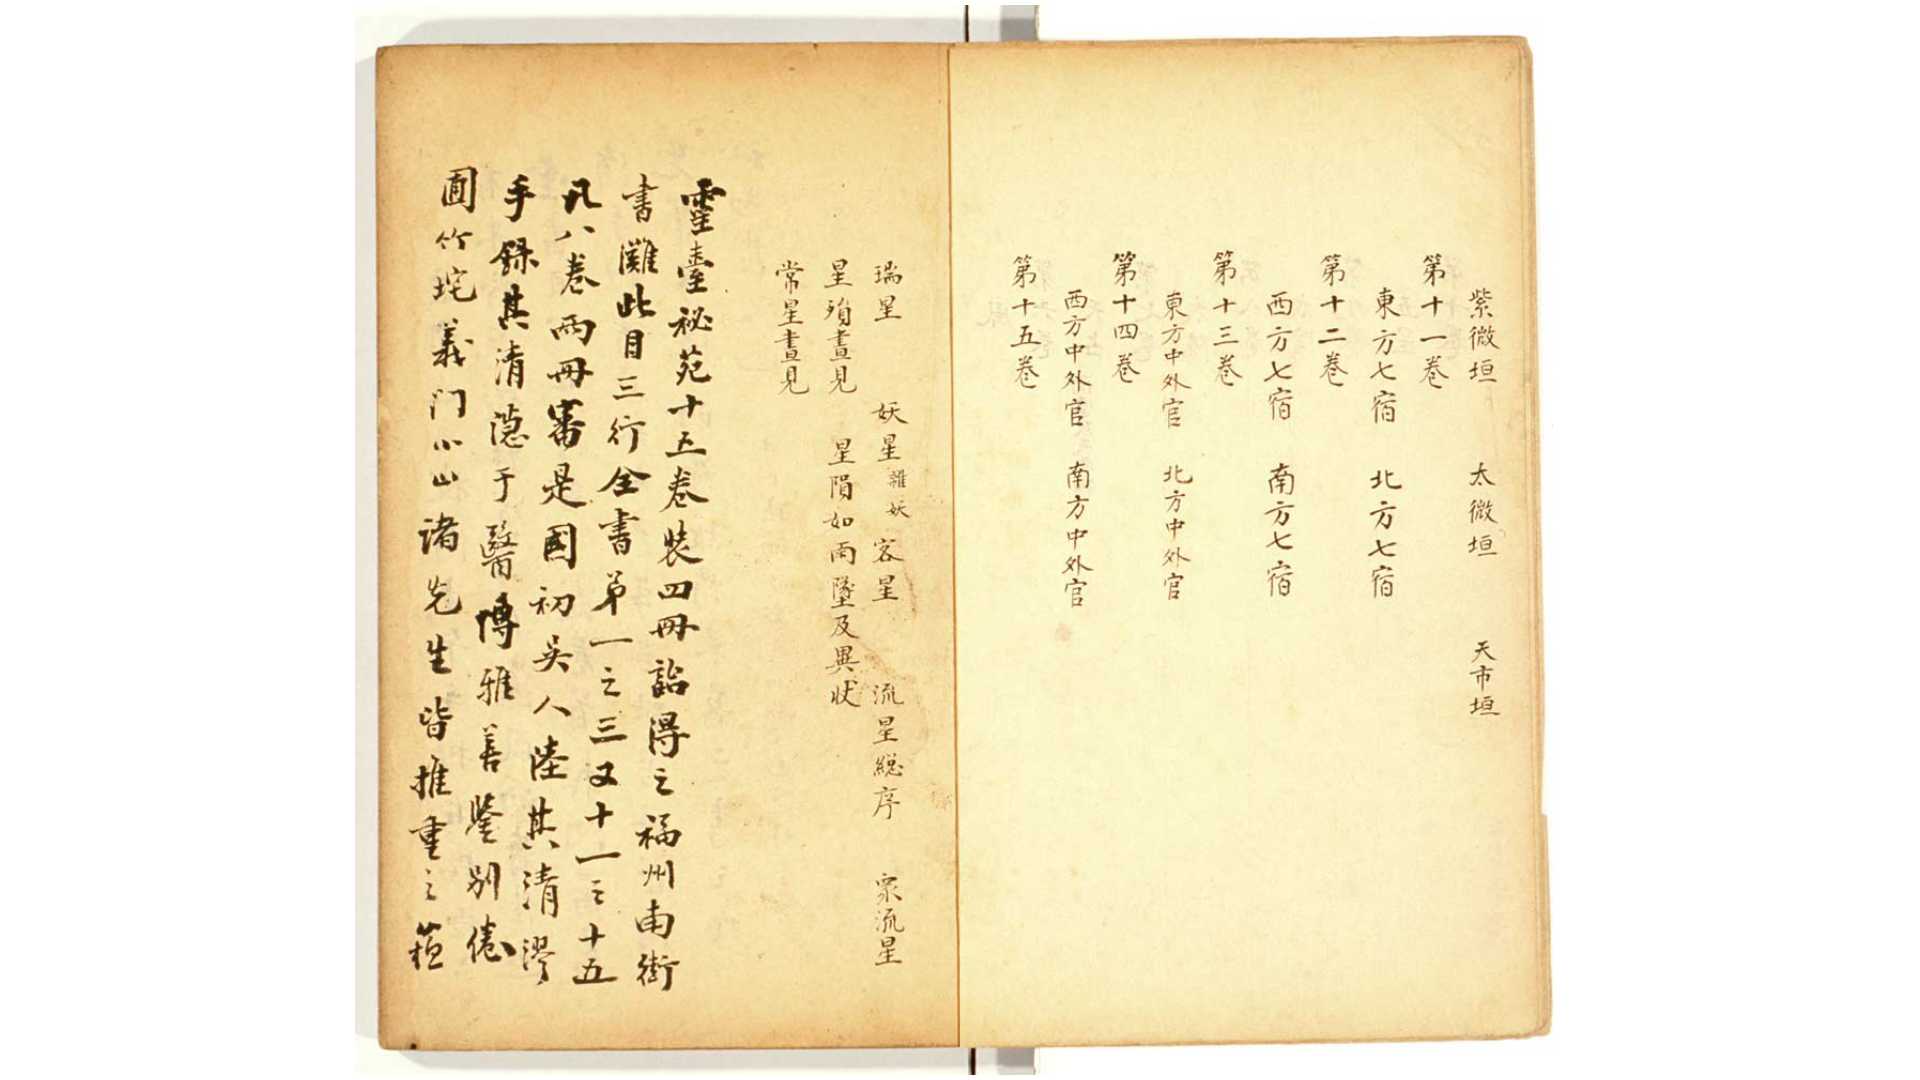 紫微垣 太微垣 天市垣
第十一卷
東方七宿 北方七宿
第十二卷
西方七宿 南方七宿
第十三卷
東方中外官 北方中外官
第十四卷
西方中外官 南方中外官
第十五卷
瑞星 妖星雜妖 客星 流星總序 衆流星
星殞晝見 星隕如雨墜及異狀
常星晝見
靈臺祕苑十五卷裝四冊詒得之福州南街
書灘此目三行全書弟一之三又十一之十五
凡八卷兩冊審是國初吳人陸其清漻
手錄其清隱于醫博雅善鑒別倦
圃竹垞義門小山諸先生皆推重之